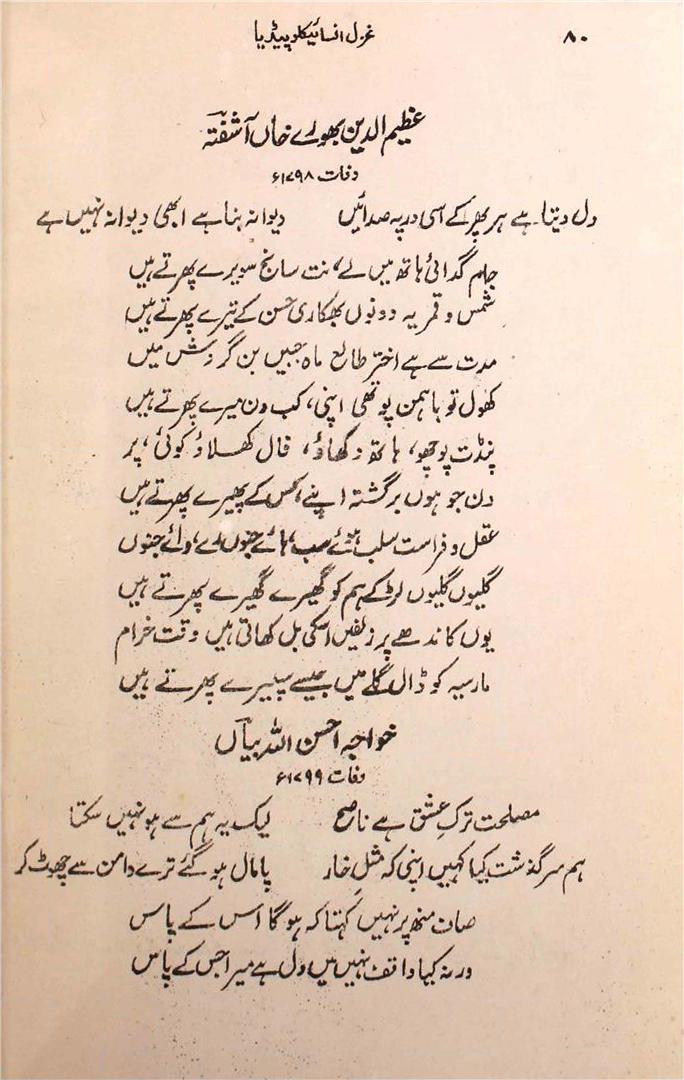 ۸۰ غزل انسائیکلوپیڈیا
عظیم الدین بھورے خاں آشفتہ
وفات ۱۷۹۸ء
دل دیتا ہے ہر پھر کے اسی در پہ صدائیں دیوانہ بنا ہے ابھی دیوانہ نہیں ہے
جام گدائی ہاتھ میں لے، نت سانج سویرے پھرتے ہیں
شمس و قمر یہ دونوں بھکاری حسن کے تیرے پھرتے ہیں
مدت سے ہے اختر طالع ماہ جبیں بن گردش میں
کھول تو باہمن پوتھی اپنی، کب دن میرے پھرتے ہیں
پنڈت پوچھو، ہاتھ دکھاؤ، فال کھلاؤ کوئی، پر
دن جو ہوں برگشتہ اپنے، کس کے پھیرے پھرتے ہیں
عقل و فراست سلب ہوئے سب، ہائے جنوں اے، وائے جنوں
گلیوں گلیوں لڑکے ہم کو گھیرے گھیرے پھرتے ہیں
یوں کاندھے پر زلفیں اسکی بل کھاتی ہیں وقت خرام
مار سیہ کو ڈال گلے میں جیسے سپیرے پھرتے ہیں
خواجہ احسن اللہ بیاںؔ
وفات ۱۷۹۹ء
مصلحت ترکِ عشق ہے ناصح لیک یہ ہم سے ہو نہیں سکتا
ہم سرگذشت کیا کہیں اپنی کہ مثلِ خار پامال ہو گئے ترے دامن سے چھوٹ کر
صاف منھ پر نہیں کہتا کہ ہوگا اس کے پاس
ورنہ کیا واقف نہیں میں دل ہے میرا جس کے پاس